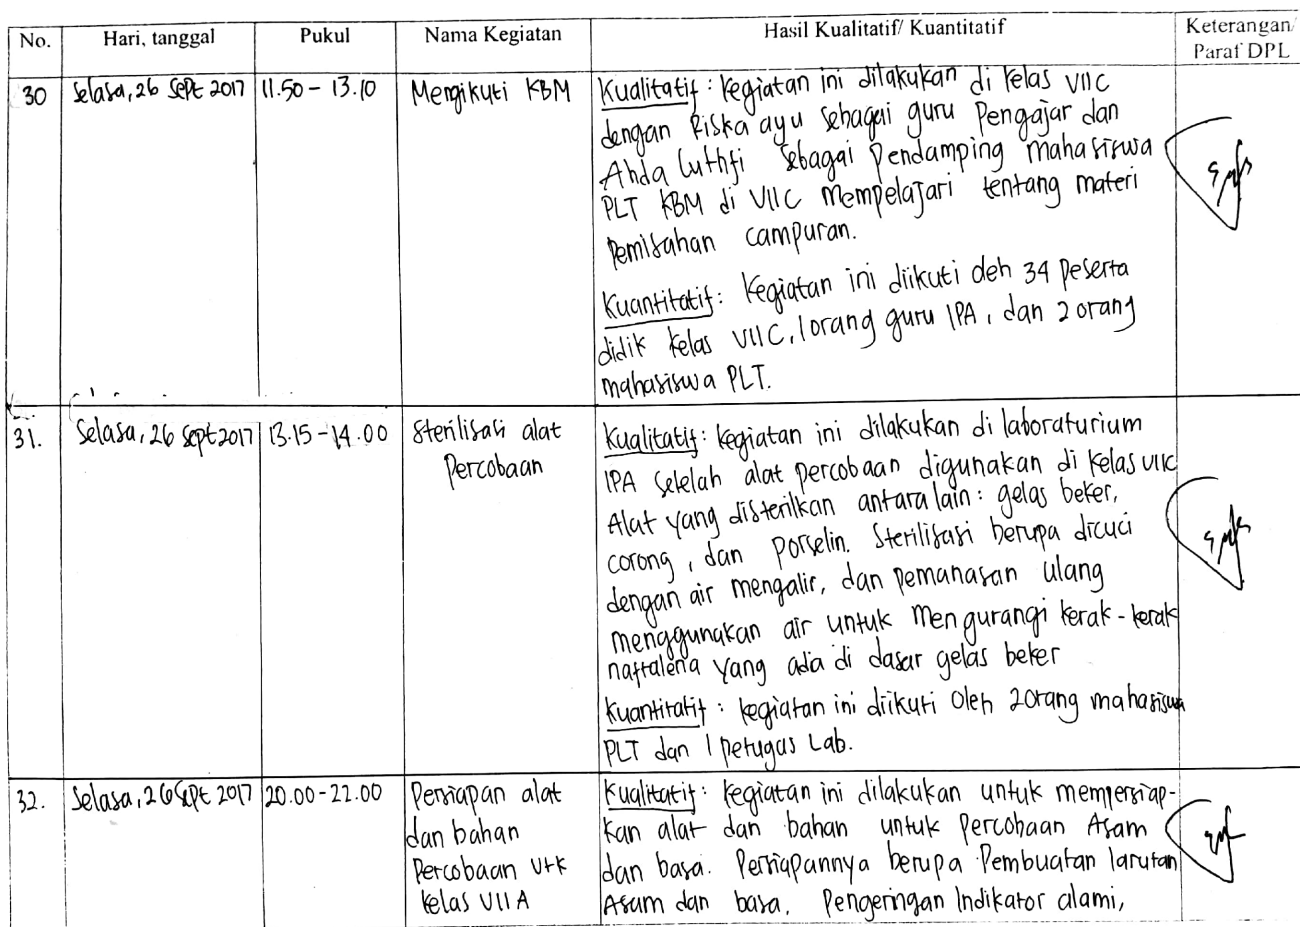 No. Hari, tanggal Pukul Nama Kegiatan Hasil Kualitatif/ Kuantitatif Keterangan/
Paraf DPL
30 Selasa, 26 Sept 2017 11.50 - 13.10 Mengikuti KBM Kualitatif : Kegiatan ini dilakukan di kelas VIIC
dengan Riska ayu sebagai guru Pengajar dan
Ahda Luthfi sebagai Pendamping mahasiswa
PLT KBM di VIIC mempelajari tentang materi
Pemisahan campuran.
Kuantitatif : Kegiatan ini diikuti oleh 34 Peserta
didik kelas VIIC, 1 orang guru IPA, dan 2 orang
mahasiswa PLT.
31. Selasa, 26 Sept 2017 13.15 - 14.00 Sterilisasi alat Kualitatif : Kegiatan ini dilakukan di laboraturium
Percobaan IPA setelah alat percobaan digunakan di kelas VIIC
Alat yang disterilkan antara lain : gelas beker,
corong, dan porselin. Sterilisasi berupa dicuci
dengan air mengalir, dan pemanasan ulang
menggunakan air untuk mengurangi kerak - kerak
naftalena yang ada di dasar gelas beker
Kuantitatif : kegiatan ini diikuti oleh 2 orang mahasiswa
PLT dan 1 petugas Lab.
32. Selasa, 26 Sept 2017 20.00 - 22.00 Persiapan alat Kualitatif : kegiatan ini dilakukan untuk mempersiap-
dan bahan kan alat dan bahan untuk Percobaan Asam
Percobaan utk dan basa. Persiapannya berupa Pembuatan larutan
kelas VII A Asam dan basa, Pengeringan Indikator alami,